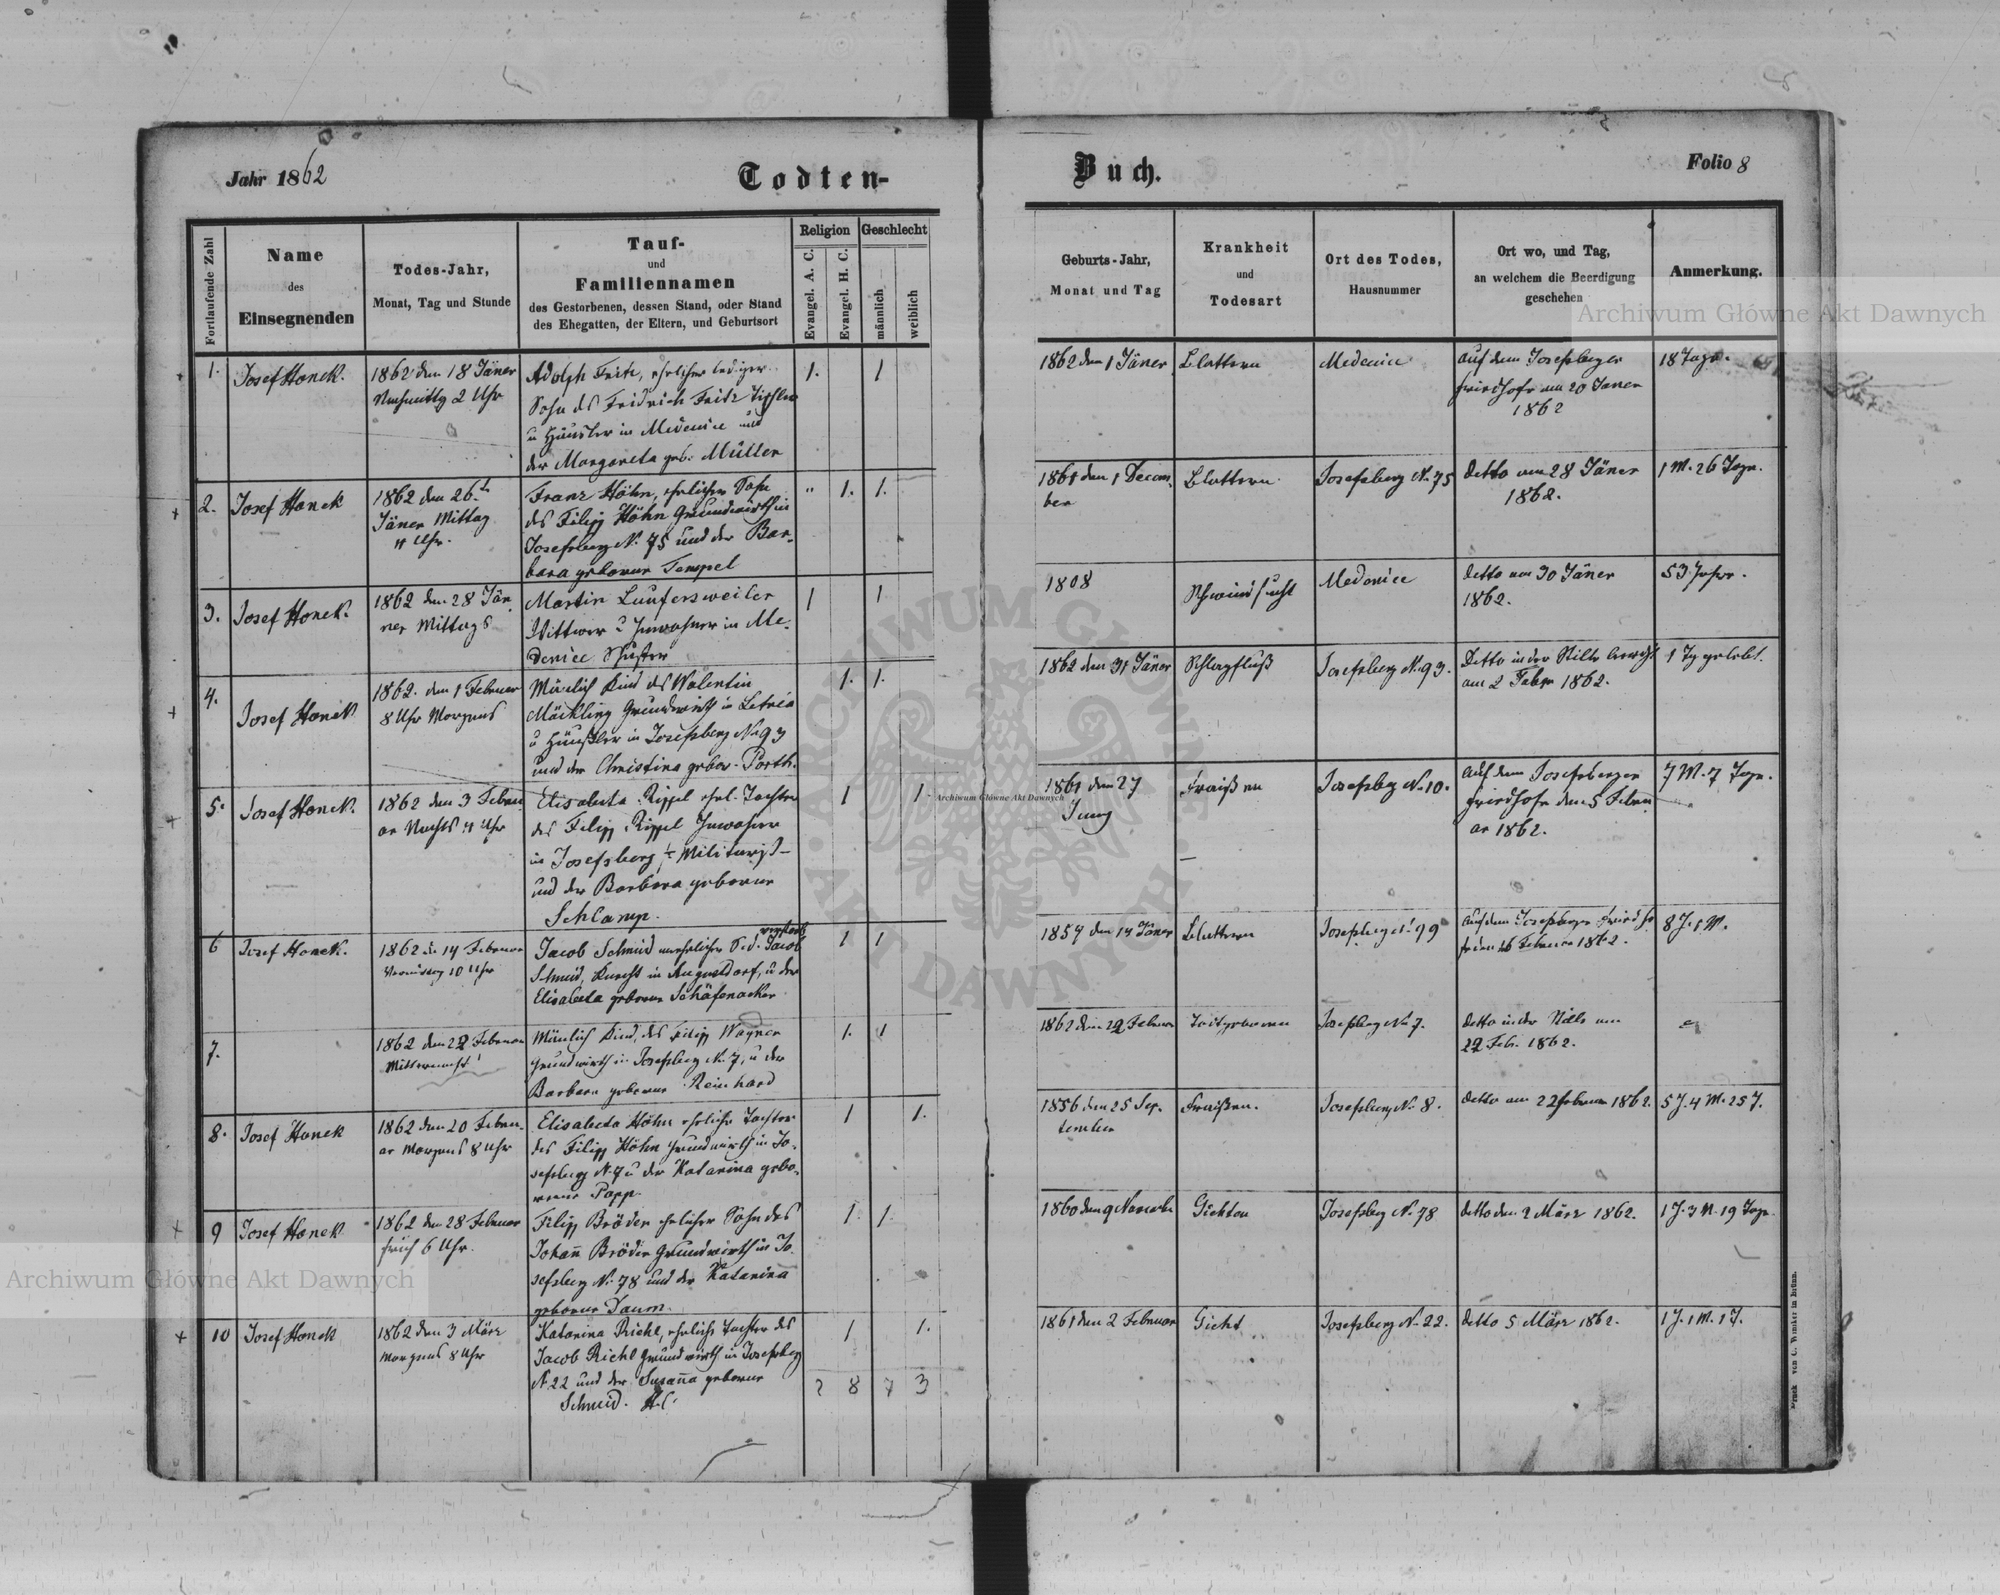 Jahr 1862
Todten-
Buch.
Folio 8
Fortlaufende Zahl
Name
des
Einsegnenden
Todes-Jahr,
Monat, Tag und Stunde
Tauf-
und
Familiennamen
des Gestorbenen, dessen Stand, oder Stand
des Ehegatten, der Eltern, und Geburtsort
Religion
Evangel. A. C.
Evangel. H. C.
Geschlecht
männlich
weiblich
Geburts-Jahr,
Monat und Tag
Krankheit
und
Todesart
Ort des Todes,
Hausnummer
Ort wo, und Tag,
an welchem die Beerdigung
geschehen
Anmerkung.
1.
Josef Honek.
1862 den 18 Jäner
Nachmittg 2 Uhr
Adolph Fritz, ehelicher lediger
Sohn des Fridrich Fritz Tischler
u Häusler in Medenice und
der Margareta geb. Müller
1.
1
1862 den 1 Jäner
Blattern
Medenice
auf dem Josefsberger
Friedhofe am 20 Jäner
1862
18 Tage.
2.
Josef Honek
1862 den 26.t
Jäner Mittag
11 Uhr.
Franz Höhn, ehelicher Sohn
des Filipp Höhn Grundwirth in
Josefsberg N. 75 und der Bar-
bara geborene Tempel
"
1.
1.
1861 den 1 Decem-
ber
Blattern
Josefsberg N. 75
detto am 28 Jäner
1862.
1 M. 26 Tage.
3.
Josef Honek.
1862 den 28 Jän-
ner Mittags
Martin Laufersweiler
Wittwer u Inwohner in Me-
denice Schuster
1
1
1808
Schwindsucht
Medenice
detto am 30 Jäner
1862.
53 Jahre.
4.
Josef Honek
1862. den 1 Februar
8 Uhr Morgens
Mänlich Kind des Valentin
Mäckling Grundwirth in Letnia
u Häusler in Josefsberg N. 93
und der Christina gebor. Porth.
1.
1.
1862 den 31 Jäner
Schlagfluß
Josefsberg N. 93.
Detto in der Stille
am 2 Feber 1862.
1 Tg gelebt.
5.
Josef Honek.
1862 den 3 Febru-
ar Nachts 11 Uhr
Elisabeta Rippel ehel. Tochter
des Filipp Rippel Inwohner
in Josefsberg
und der Barbara geborene
Schlamp.
1
1.
1861 den 27
Juny
Fraißen
Josefsbg N. 10.
auf dem Josefsberger
Friedhofe den 5 Febru-
ar 1862.
7 M. 7 Tage.
6
Josef Honek.
1862 den 14 Februar
Vormittag 10 Uhr
Jacob Schmid unehelicher Sohn d. Jacob
Schmid, Knecht in Augustdorf, u der
Elisabeta geborene Schäfenacker
1
1
1854 den 14 Jäner
Blattern
Josefsberg N. 99
auf dem Josefsberger Friedho-
fe den 16 Februar 1862.
8 J. 1 M.
7.
1862 den 22 Februar
Mitternacht
Mänlich Kind, des Filipp Wagner
Grundwirth in Josefsberg N. 7, u der
Barbara geborene Reinhard
1.
1
1862 den 22 Februar
Todtgeboren
Josefsberg N. 7.
detto in der Stille am
22 Feb. 1862.
8.
Josef Honek
1862 den 20 Febru-
ar Morgens 8 Uhr
Elisabeta Höhn eheliche Tochter
des Filipp Höhn Grundwirth in Jo-
sefsberg N. 7 u der Katarina gebo-
rene Papp
1
1.
1856 den 25 Sep-
tember
Fraißen.
Josefsberg N. 8.
detto am 22 Februar 1862.
5 J. 4 M. 25 T.
9
Josef Honek
1862 den 28 Februar
früh 6 Uhr.
Filipp Bröder ehelicher Sohn des
Johann Bröder Grundwirth in Jo-
sefsberg N. 78 und der Katarina
geborene Daum.
1.
1.
1860 den 9 Novembr
Gichten
Josefsberg N. 78
detto den 2 März 1862.
1 J. 3 M. 19 Tage
10
Josef Honek
1862 den 3 März
Morgens 8 Uhr
Katarina Riehl, eheliche Tochter des
Jacob Riehl Grundwirth in Josefsberg
N. 22 und der Susanna geborene
Schmid. H.C.
1
1.
1861 den 2 Februar
Gicht
Josefsberg N. 22.
detto 5 März 1862.
1 J. 1 M. 1 T.
2 8 7 3
Druck von C. Winiker in Brünn.
Archiwum Główne Akt Dawnych
Archiwum Główne Akt Dawnych
Archiwum Główne Akt Dawnych
ARCHIWUM GŁÓWNE AKT DAWNYCH